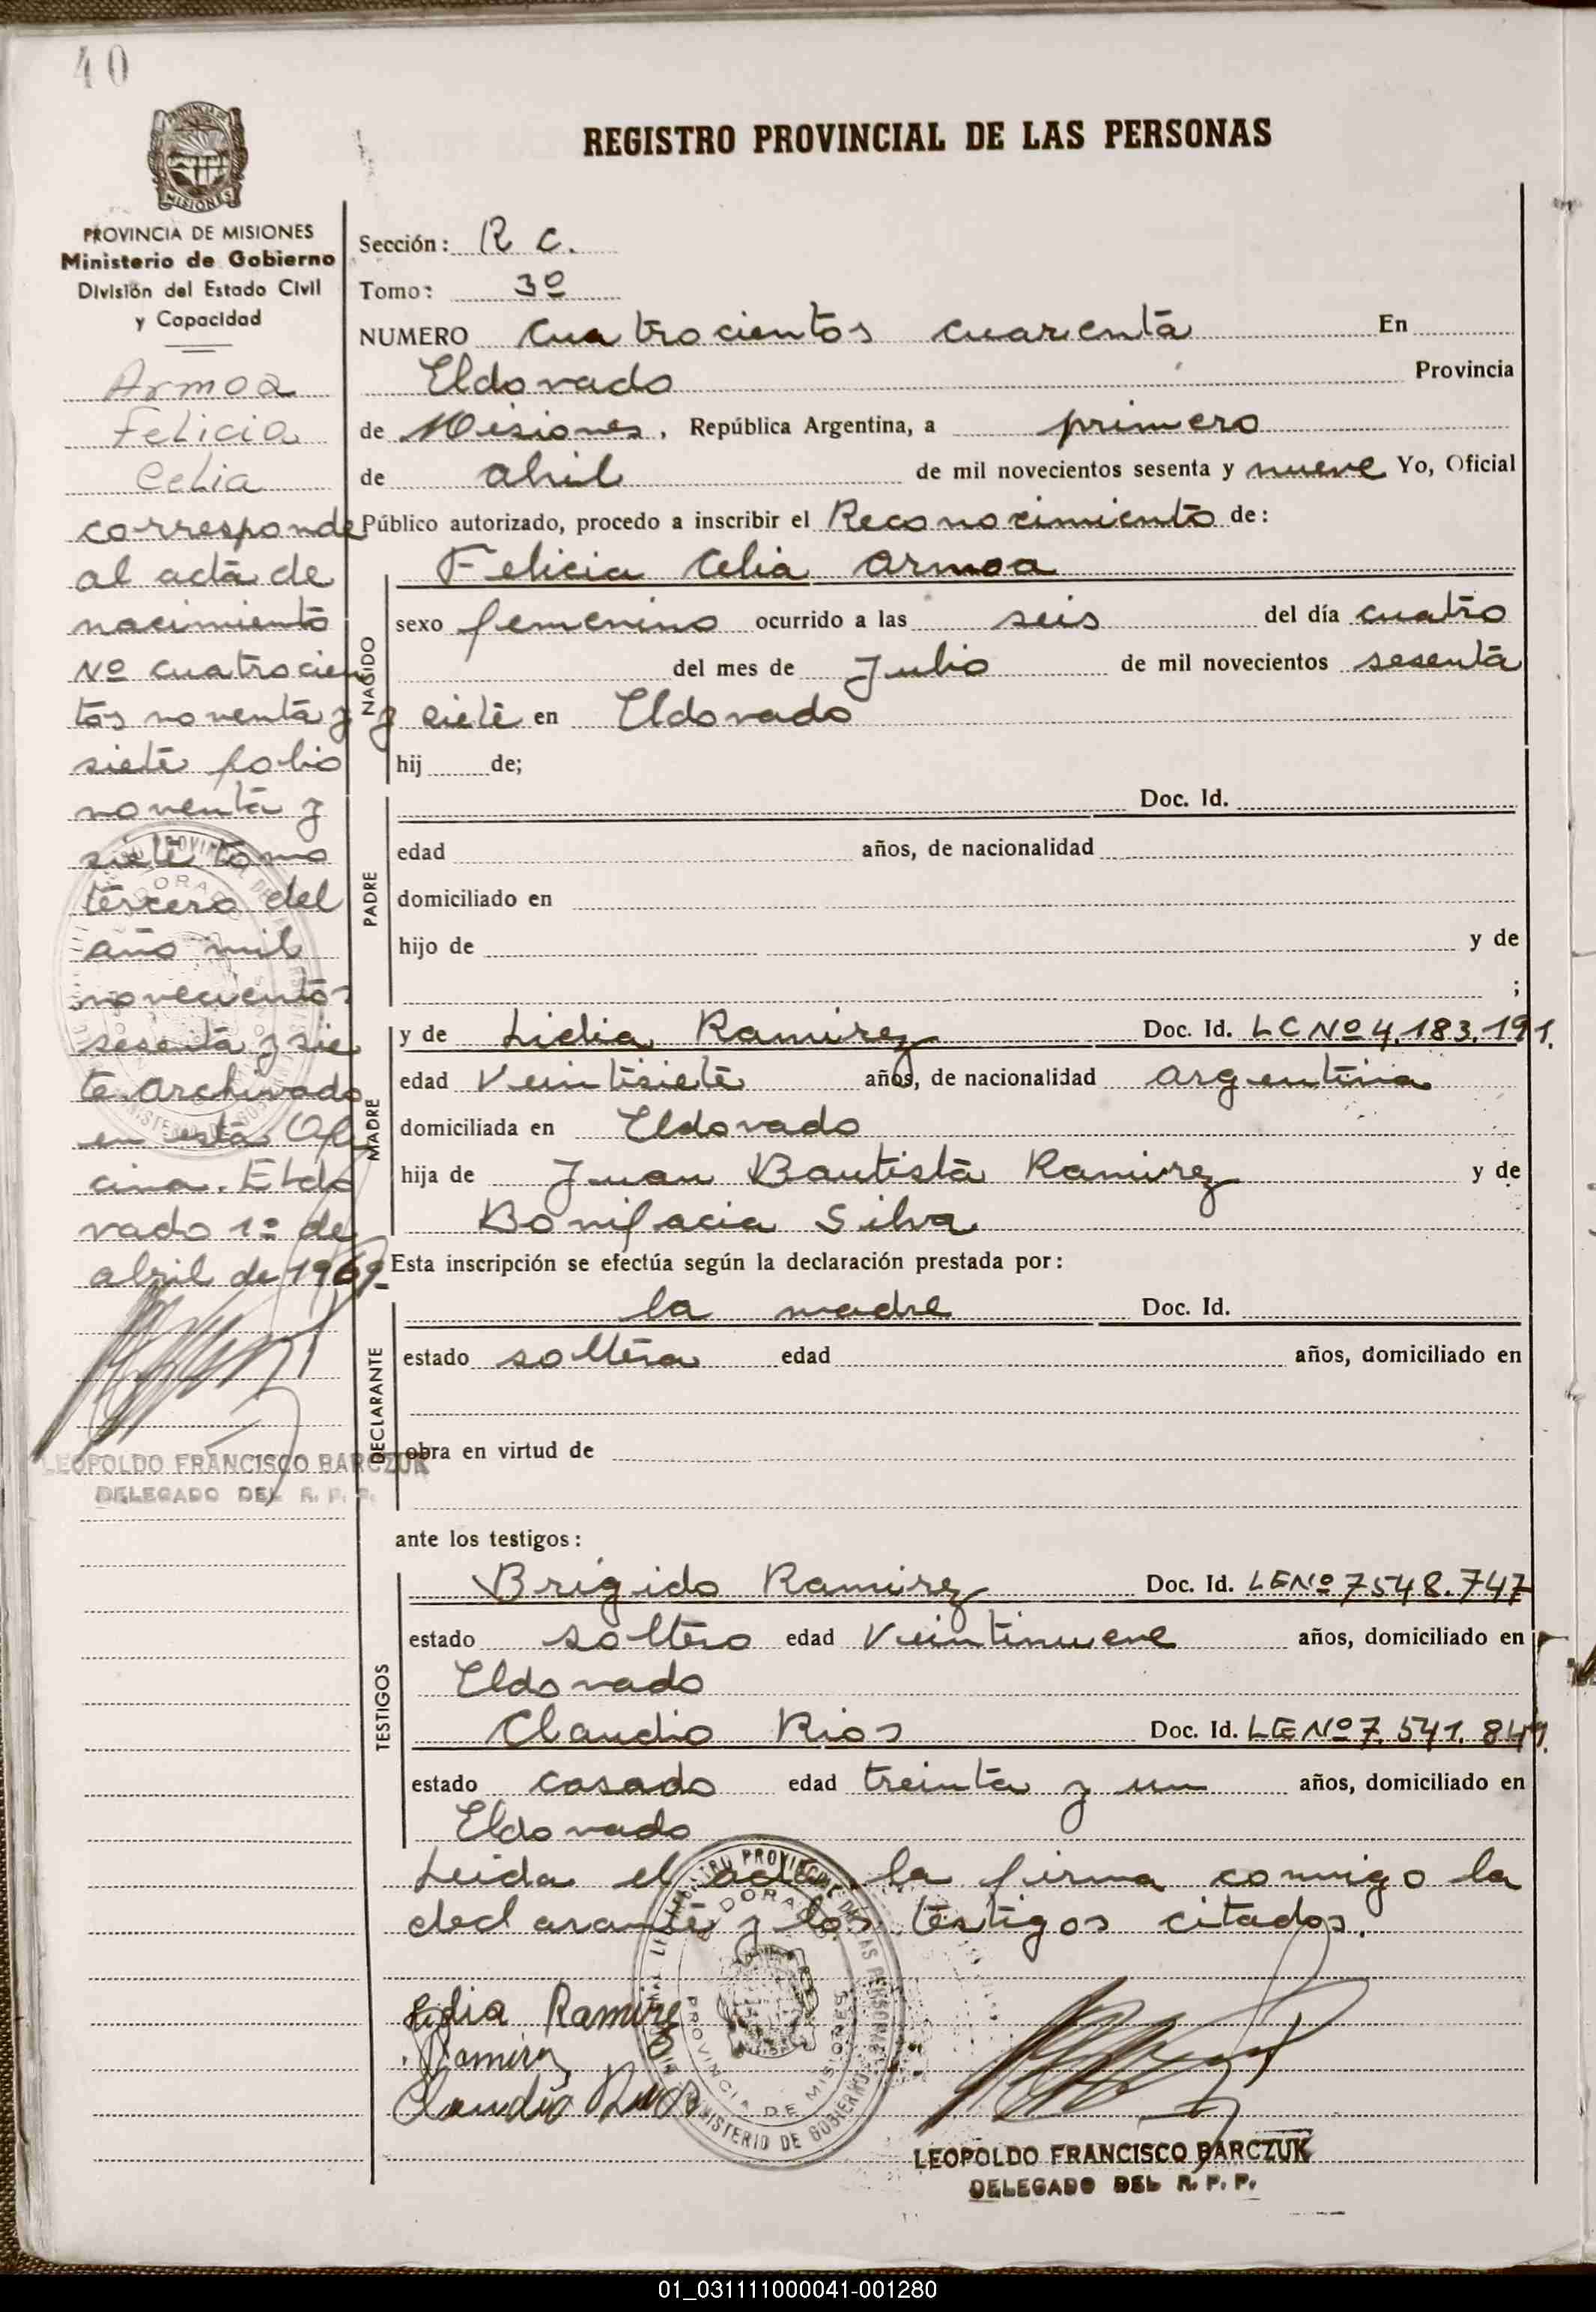 40
REGISTRO PROVINCIAL DE LAS PERSONAS
MISIONES
PROVINCIA DE MISIONES
Ministerio de Gobierno
División del Estado Civil
y Capacidad
Armoa
Felicia
Celia
corresponde
al acta de
nacimiento
Nº cuatrocien
tos noventa y
siete folio
noventa y
siete tomo
tercero del
año mil
novecientos
sesenta y sie
te archivado
en esta Ofi
cina. Eldo
rado 1º de
abril de 1969-
LEOPOLDO FRANCISCO BARCZUK
DELEGADO DEL R. P. P.
Sección: R C.
Tomo: 3º
NUMERO Cuatrocientos cuarenta En
Eldorado Provincia
de Misiones, República Argentina, a primero
de abril de mil novecientos sesenta y nueve Yo, Oficial
Público autorizado, procedo a inscribir el Reconocimiento de:
NACIDO
Felicia Celia Armoa
sexo femenino ocurrido a las seis del día cuatro
del mes de Julio de mil novecientos sesenta
y siete en Eldorado
hij de;
PADRE
Doc. Id.
edad años, de nacionalidad
domiciliado en
hijo de y de
;
MADRE
y de Lidia Ramirez Doc. Id. LC Nº 4.183.191.
edad Veintisiete años, de nacionalidad argentina
domiciliada en Eldorado
hija de Juan Bautista Ramirez y de
Bonifacia Silva
Esta inscripción se efectúa según la declaración prestada por:
DECLARANTE
la madre Doc. Id.
estado soltera edad años, domiciliado en
obra en virtud de
ante los testigos:
TESTIGOS
Brigido Ramirez Doc. Id. LE Nº 7548.747
estado soltero edad Veintinueve años, domiciliado en
Eldorado
Claudio Rios Doc. Id. LE Nº 7.541.841.
estado casado edad treinta y un años, domiciliado en
Eldorado
Leida el acta, la firma conmigo la
declarante y los testigos citados.
Lidia Ramirez
Ramirez
Claudio Rios
PROVINCIA DE MISIONES
MINISTERIO DE GOBIERNO
LEOPOLDO FRANCISCO BARCZUK
DELEGADO DEL R. P. P.
01_031111000041-001280